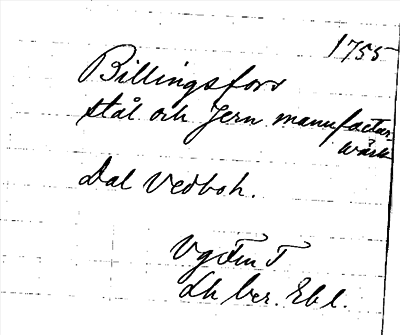 1755
Billingsfors
stål och Jern manufactur-
wärk
Dal Vedboh.
Vg Fm T
Lh ber. Ebl.